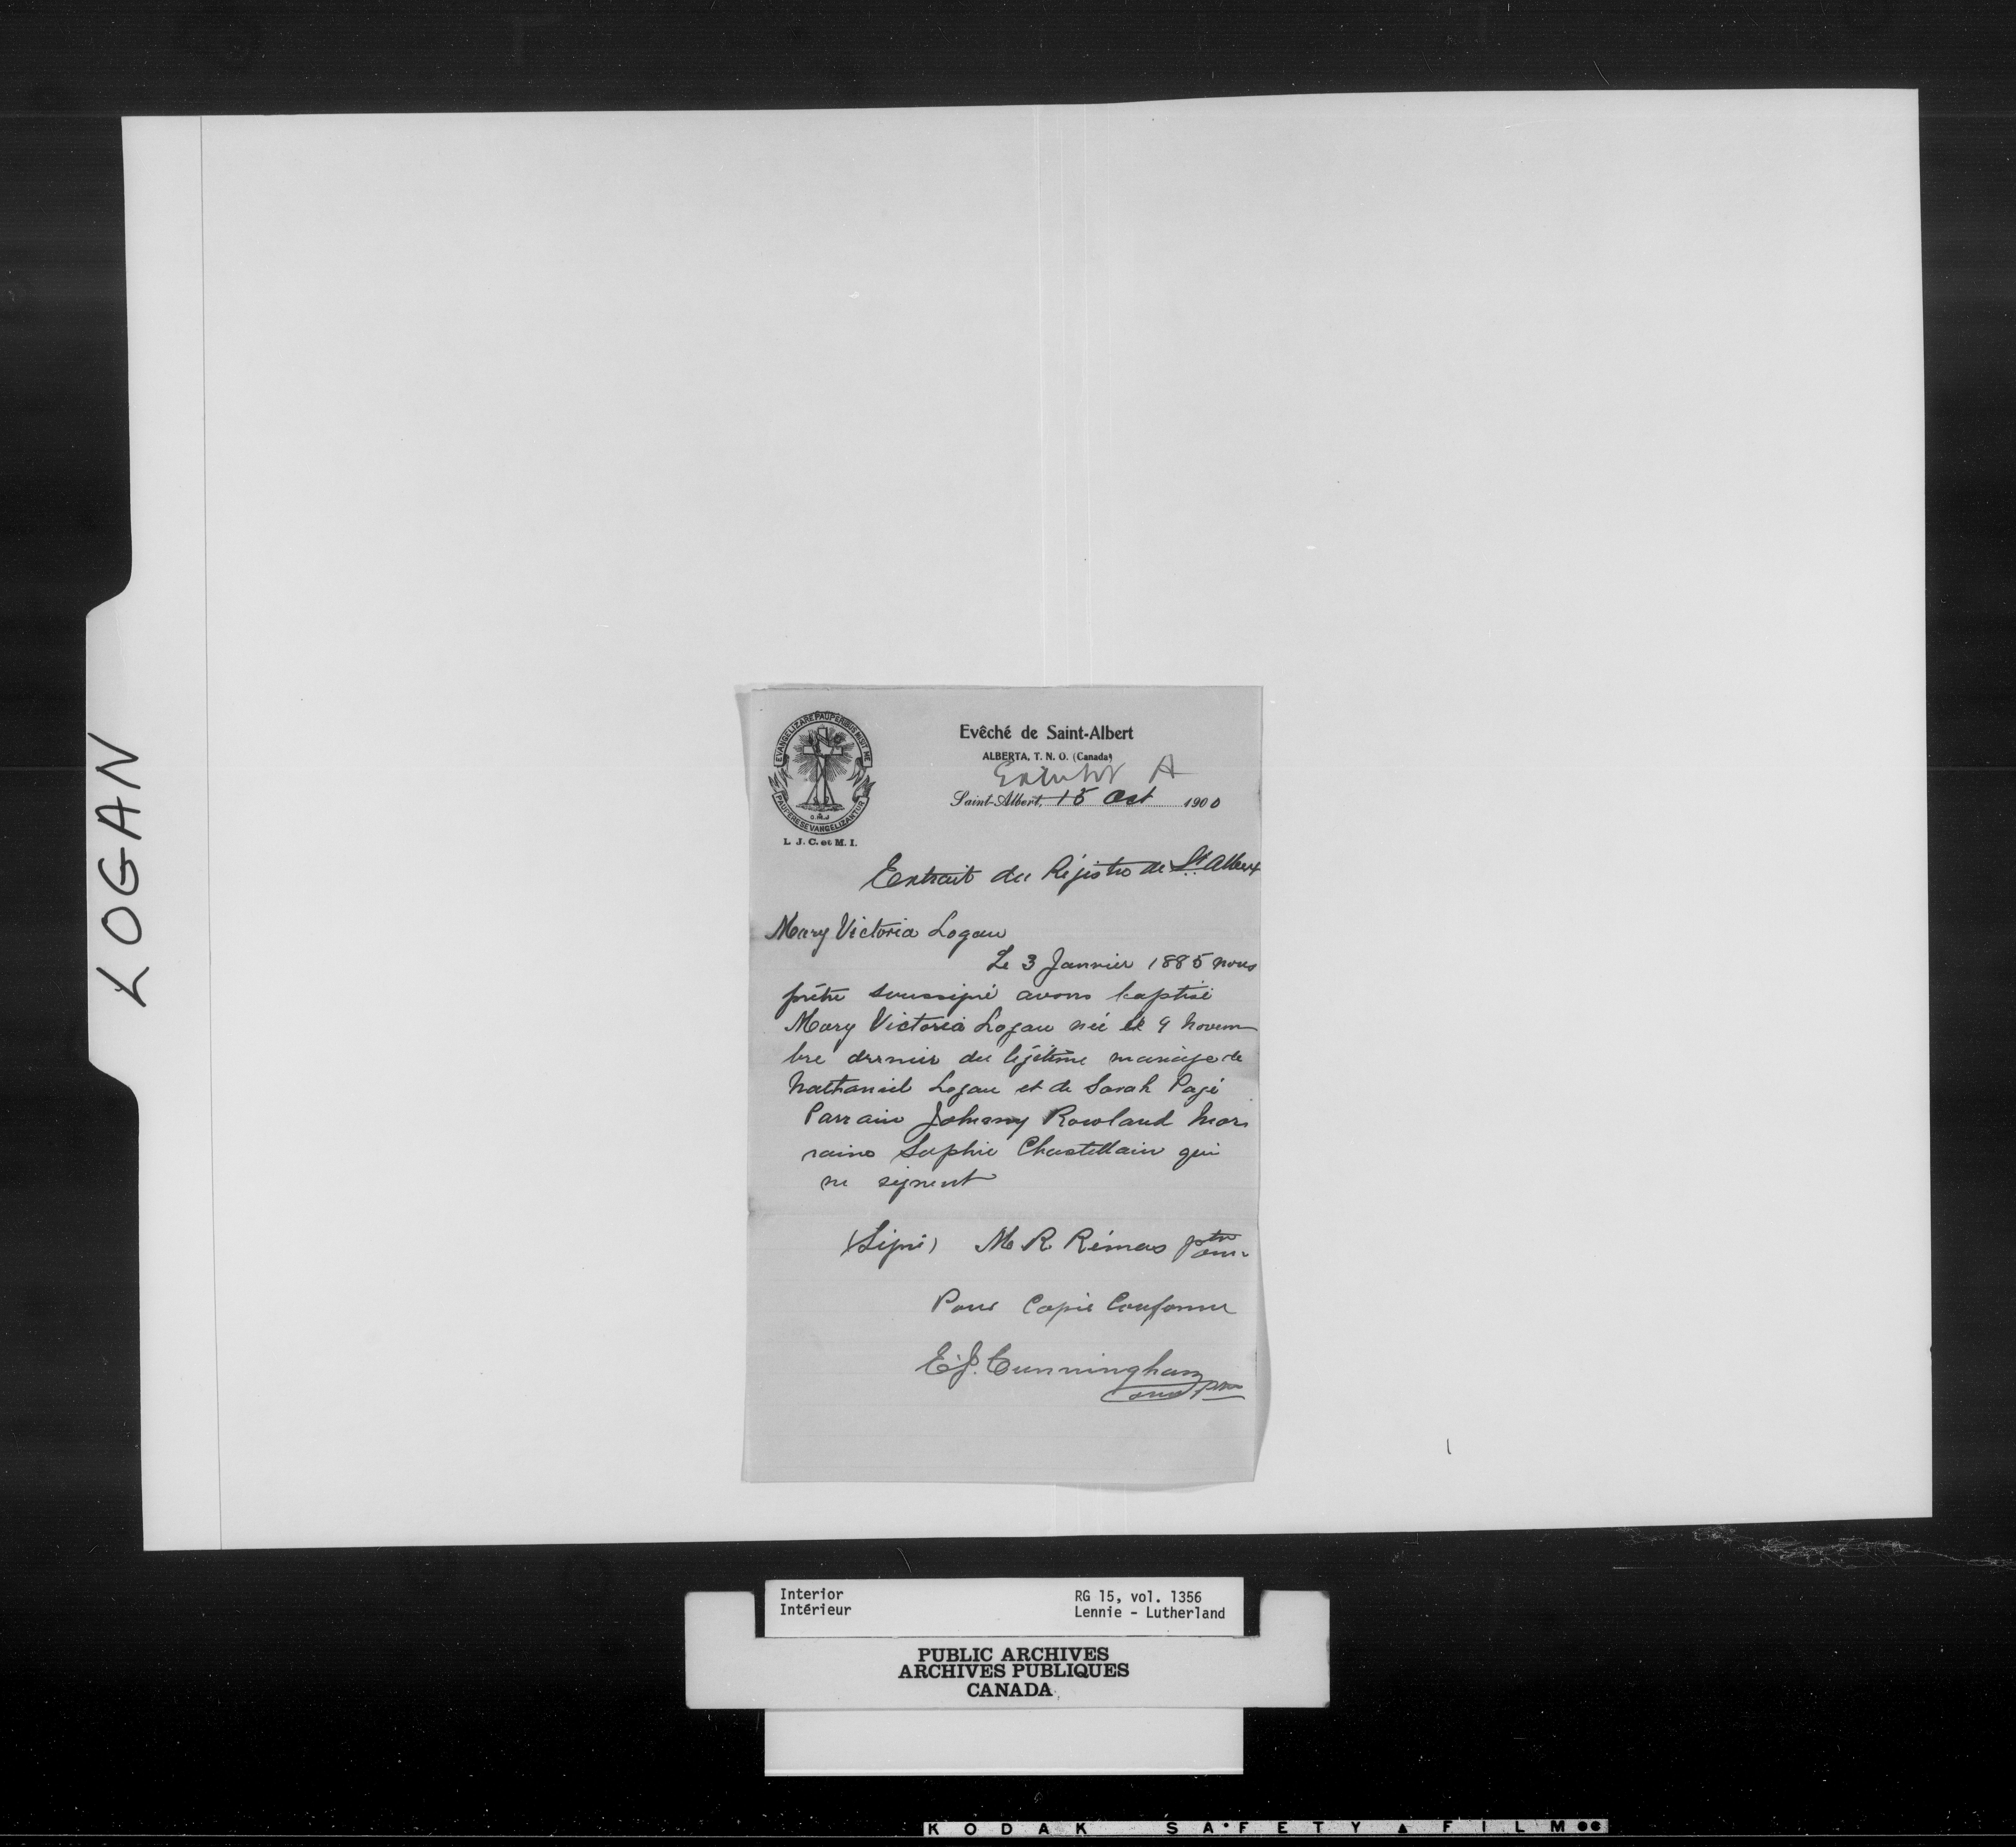 LOGAN
EVANGELIZARE PAUPERIBUS MISIT ME
PAUPERES EVANGELIZANTUR
O.M.I
L. J. C. et M. I.
Evêché de Saint-Albert
ALBERTA, T. N. O. (Canada)
Exhibit A
Saint-Albert, 15 Oct 1900
Extrait du Régistre de St. Albert
Mary Victoria Logan
Le 3 Janvier 1885 nous
prêtre soussigné avons baptisé
Mary Victoria Logan née le 9 Novem
bre dernier du légitime mariage de
Nathaniel Logan et de Sarah Pagé
Parrain Johnny Rowland Mar
raine Sophie Chastellain qui
ne signent
(Signé) M R Rémas ptre omi
Pour Copie Conforme
E.J. Cunningham
omi ptre
Interior
Intérieur
RG 15, vol. 1356
Lennie - Lutherland
PUBLIC ARCHIVES
ARCHIVES PUBLIQUES
CANADA
KODAK SAFETY FILM